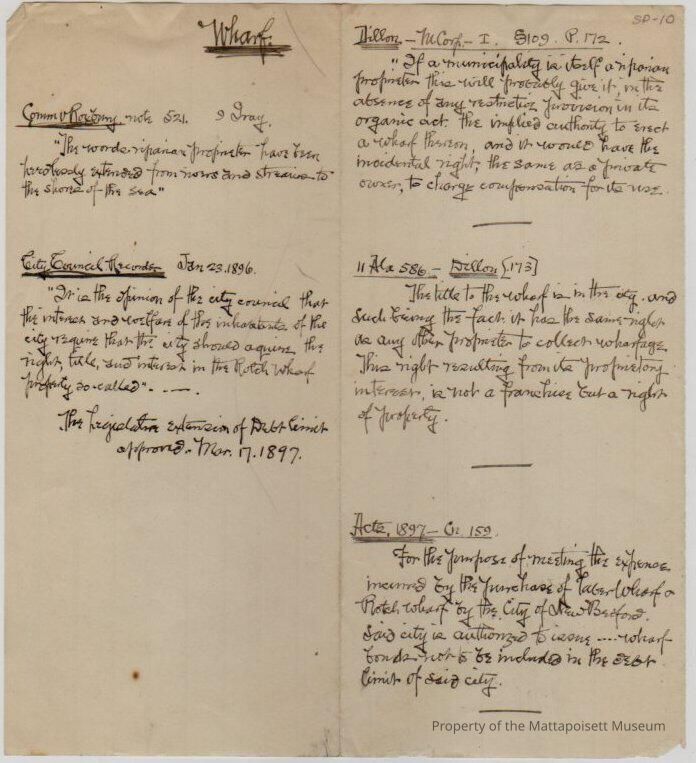 Wharf.
Comm v Roxbury, note 521. 9 Gray.
"The words riparian proprietor have been
heedlessly extended from rivers and streams to
the shores of the sea"
City Council Records Jan 23. 1896.
"It is the opinion of the city council that
the interest and welfare of the inhabitants of the
city require that the city should aquire the
right, title, and interest in the Rotch Wharf
property so called".
The Legislative extension of Debt limit
approved. Mar. 17. 1897.
SP-10
Dillon - M Corp - I. §109. P. 172.
"If a municipality is itself a riparian
proprietor this will probably give it, in the
absence of any restrictive provision in its
organic act, the implied authority to erect
a wharf thereon, and it would have the
incidental right, the same as a private
owner, to charge compensation for its use.
11 Ala 586 - Dillon [173]
The title to the wharf is in the city. and
such being the fact it has the same right
as any other proprietor to collect wharfage
This right resulting from its proprietory
interest, is not a franchise but a right
of property.
Acts, 1897 - Ch. 159.
For the purpose of meeting the expense
incurred by the purchase of Taber Wharf &
Rotch Wharf by the City of New Bedford.
Said city is authorized to issue .... wharf
bonds not to be included in the debt
limit of said city.
Property of the Mattapoisett Museum